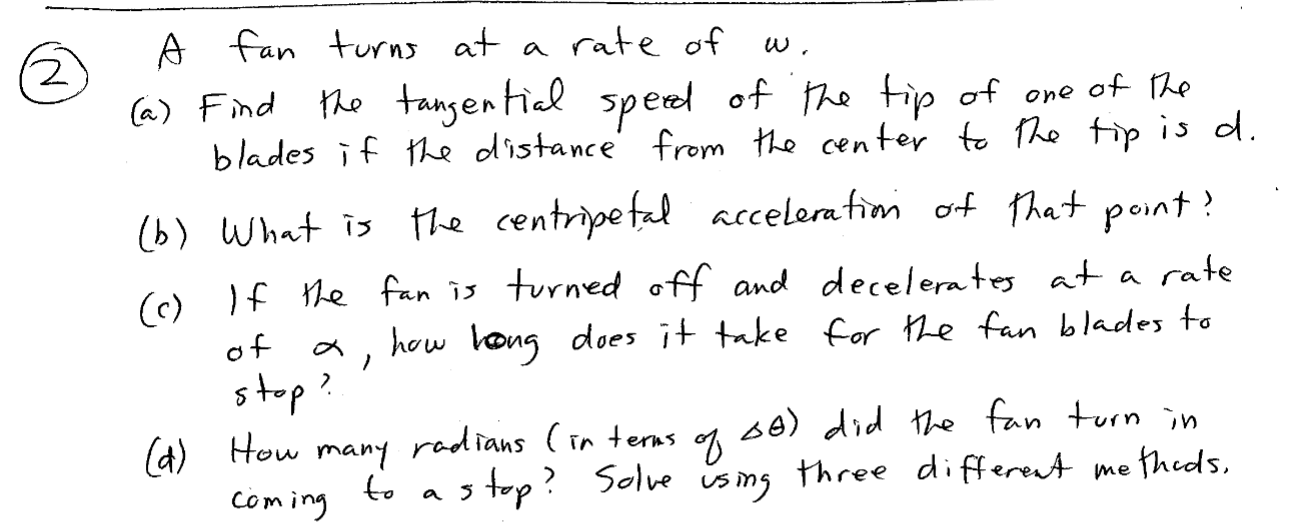 ② A fan turns at a rate of ω.
(a) Find the tangential speed of the tip of one of the
blades if the distance from the center to the tip is d.
(b) What is the centripetal acceleration of that point?
(c) If the fan is turned off and decelerates at a rate
of α, how long does it take for the fan blades to
stop?
(d) How many radians (in terms of Δθ) did the fan turn in
coming to a stop? Solve using three different methods.